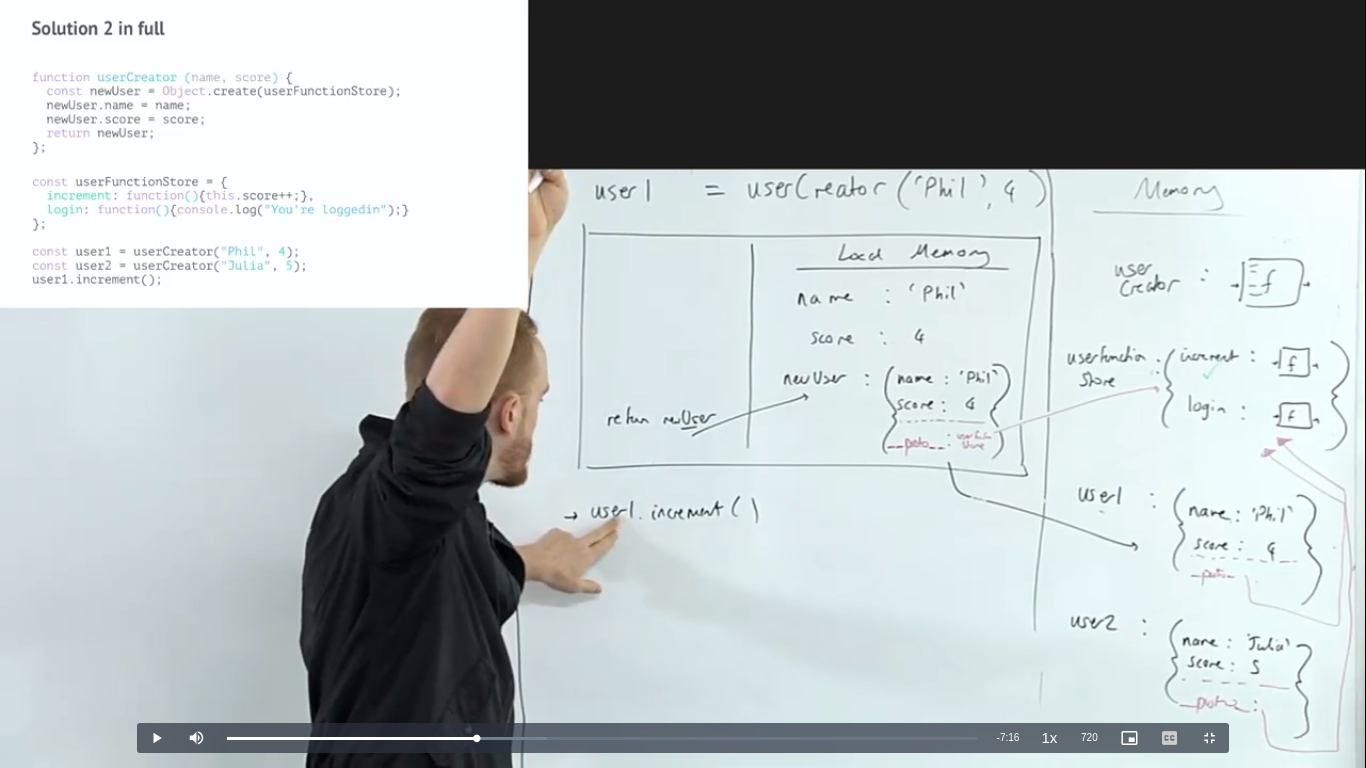 Solution 2 in full
function userCreator (name, score) {
const newUser = Object.create(userFunctionStore);
newUser.name = name;
newUser.score = score;
return newUser;
};
const userFunctionStore = {
increment: function(){this.score++;},
login: function(){console.log("You're loggedin");}
};
const user1 = userCreator("Phil", 4);
const user2 = userCreator("Julia", 5);
user1.increment();
user1 = userCreator('Phil', 4)
Local Memory
name : 'Phil'
score : 4
newUser : { name : 'Phil'
score : 4
__proto__ : userFunction
Store }
return newUser
→ user1.increment()
Memory
user
Creator : f
userFunction
Store : { increment : f
login : f }
user1 : { name : 'Phil'
score : 4
__proto__ }
user2 : { name : 'Julia'
score : 5
__proto__ : }
-7:16 1x 720 CC